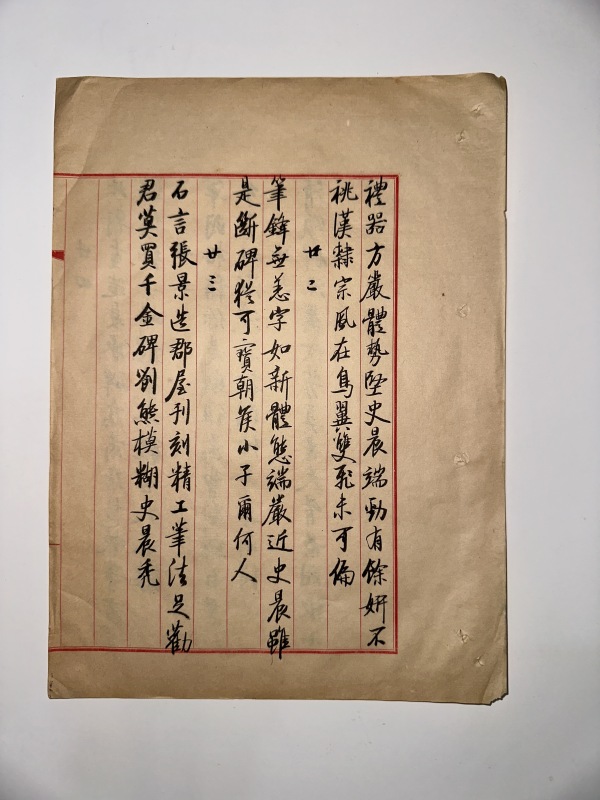 禮器方嚴體勢堅史晨端勁有餘妍不
祧漢隸宗風在鳥翼雙飛未可偏
廿二
筆鋒無恙字如新體態端嚴近史晨雖
是斷碑猶可寶朝侯小子爾何人
廿三
石言張景造郡屋刊刻精工筆法足勸
君莫買千金碑劉熊模糊史晨禿